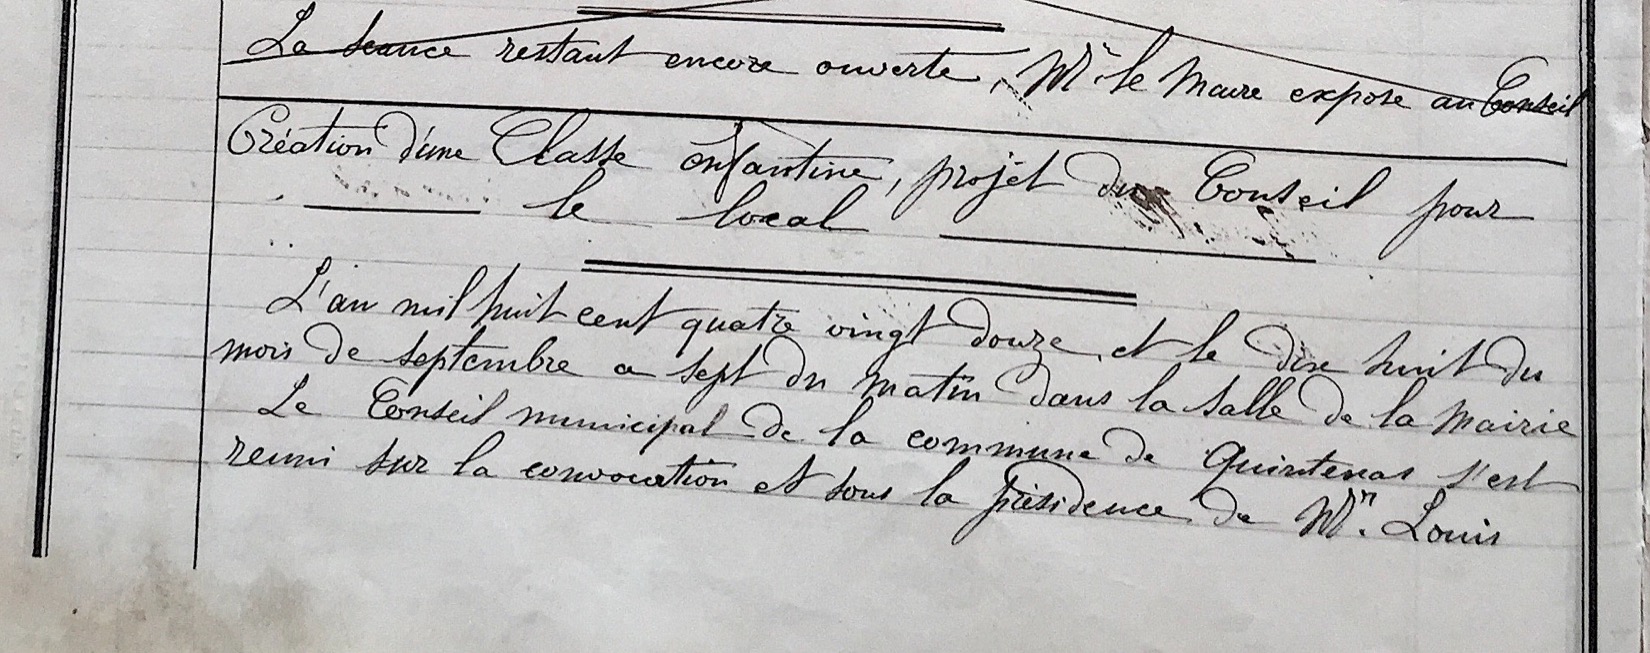 La seance restant encore ouverte, Mr le Maire expose au Conseil
Création d'une Classe enfantine, projet du Conseil pour
le local
L'an mil huit cent quatre vingt douze, et le dix huit du
mois de septembre a sept du matin dans la salle de la Mairie
Le Conseil municipal de la commune de Quintenas s'est
reuni sur la convocation et sous la présidence de Mr. Louis